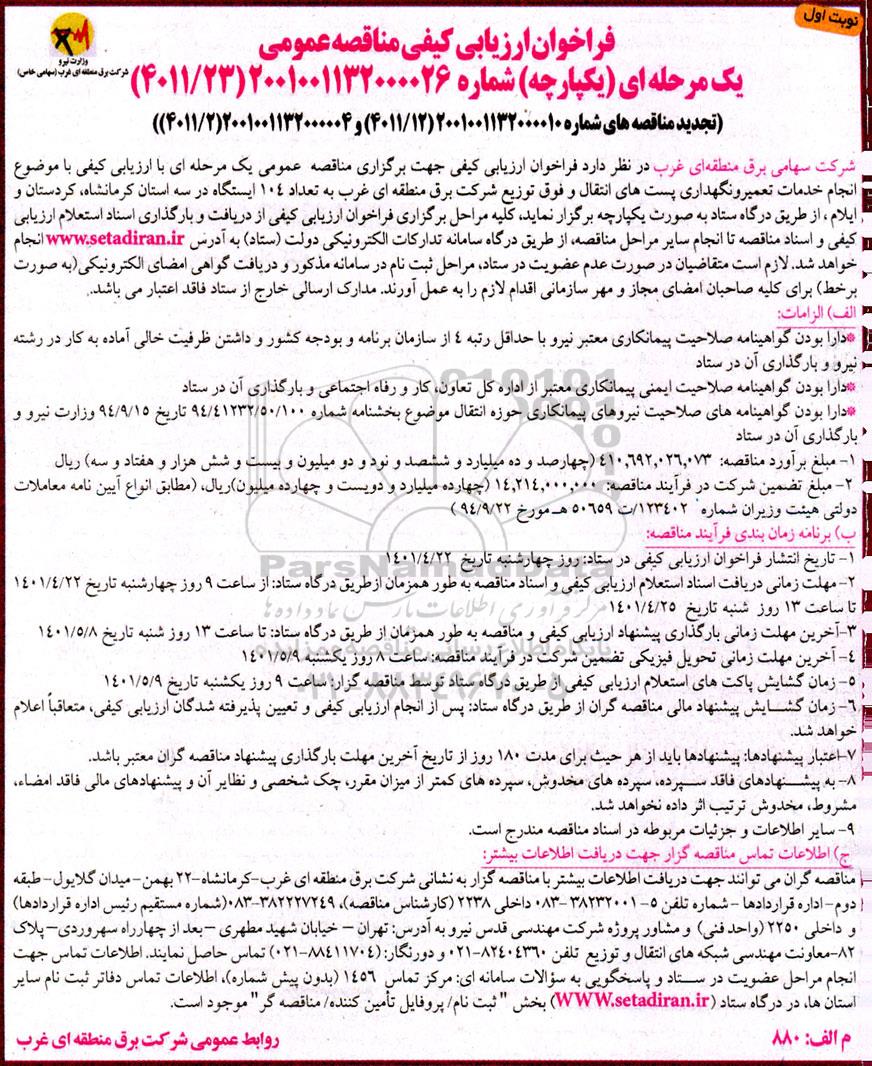 نوبت اول
وزارت نیرو
شرکت برق منطقه ای غرب (سهامی خاص)
فراخوان ارزیابی کیفی مناقصه عمومی
یک مرحله ای (یکپارچه) شماره ۲۰۰۱۰۰۱۱۳۲۰۰۰۰۲۶ (۴۰۱۱/۲۳)
(تجدید مناقصه های شماره ۲۰۰۱۰۰۱۱۳۲۰۰۰۰۱۰ (۴۰۱۱/۱۲) و ۲۰۰۱۰۰۱۱۳۲۰۰۰۰۰۴(۴۰۱۱/۲))
شرکت سهامی برق منطقه‌ای غرب در نظر دارد فراخوان ارزیابی کیفی جهت برگزاری مناقصه عمومی یک مرحله ای با ارزیابی کیفی با موضوع
انجام خدمات تعمیرونگهداری پست های انتقال و فوق توزیع شرکت برق منطقه ای غرب به تعداد ۱۰۴ ایستگاه در سه استان کرمانشاه، کردستان و
ایلام ، از طریق درگاه ستاد به صورت یکپارچه برگزار نماید، کلیه مراحل برگزاری فراخوان ارزیابی کیفی از دریافت و بارگذاری اسناد استعلام ارزیابی
کیفی و اسناد مناقصه تا انجام سایر مراحل مناقصه، از طریق درگاه سامانه تدارکات الکترونیکی دولت (ستاد) به آدرس www.setadiran.ir انجام
خواهد شد. لازم است متقاضیان در صورت عدم عضویت در ستاد، مراحل ثبت نام در سامانه مذکور و دریافت گواهی امضای الکترونیکی(به صورت
برخط) برای کلیه صاحبان امضای مجاز و مهر سازمانی اقدام لازم را به عمل آورند. مدارک ارسالی خارج از ستاد فاقد اعتبار می باشد.
الف) الزامات:
*دارا بودن گواهینامه صلاحیت پیمانکاری معتبر نیرو با حداقل رتبه ۴ از سازمان برنامه و بودجه کشور و داشتن ظرفیت خالی آماده به کار در رشته
نیرو و بارگذاری آن در ستاد
*دارا بودن گواهینامه صلاحیت ایمنی پیمانکاری معتبر از اداره کل تعاون، کار و رفاه اجتماعی و بارگذاری آن در ستاد
*دارا بودن گواهینامه های صلاحیت نیروهای پیمانکاری حوزه انتقال موضوع بخشنامه شماره ۹۴/۴۱۲۳۲/۵۰/۱۰۰ تاریخ ۹۴/۹/۱۵ وزارت نیرو و
بارگذاری آن در ستاد
۱- مبلغ برآورد مناقصه: ۴۱۰,۶۹۲,۰۲۶,۰۷۳ (چهارصد و ده میلیارد و ششصد و نود و دو میلیون و بیست و شش هزار و هفتاد و سه) ریال
۲- مبلغ تضمین شرکت در فرآیند مناقصه: ۱۴,۲۱۴,۰۰۰,۰۰۰ (چهارده میلیارد و دویست و چهارده میلیون)ریال، (مطابق انواع آیین نامه معاملات
دولتی هیئت وزیران شماره ۱۲۳۴۰۲/ت ۵۰۶۵۹ هـ مورخ ۹۴/۹/۲۲ )
ب) برنامه زمان بندی فرآیند مناقصه:
۱- تاریخ انتشار فراخوان ارزیابی کیفی در ستاد: روز چهارشنبه تاریخ ۱۴۰۱/۴/۲۲
۲- مهلت زمانی دریافت اسناد استعلام ارزیابی کیفی و اسناد مناقصه به طور همزمان از طریق درگاه ستاد: از ساعت ۹ روز چهارشنبه تاریخ ۱۴۰۱/۴/۲۲
تا ساعت ۱۳ روز شنبه تاریخ ۱۴۰۱/۴/۲۵
۳-آخرین مهلت زمانی بارگذاری پیشنهاد ارزیابی کیفی و مناقصه به طور همزمان از طریق درگاه ستاد: تا ساعت ۱۳ روز شنبه تاریخ ۱۴۰۱/۵/۸
۴- آخرین مهلت زمانی تحویل فیزیکی تضمین شرکت در فرآیند مناقصه: ساعت ۸ روز یکشنبه ۱۴۰۱/۵/۹
۵- زمان گشایش پاکت های استعلام ارزیابی کیفی از طریق درگاه ستاد توسط مناقصه گزار: ساعت ۹ روز یکشنبه تاریخ ۱۴۰۱/۵/۹
۶- زمان گشـــایش پیشنهاد مالی مناقصه گران از طریق درگاه ستاد: پس از انجام ارزیابی کیفی و تعیین پذیرفته شدگان ارزیابی کیفی، متعاقباً اعلام
خواهد شد.
۷-اعتبار پیشنهادها: پیشنهادها باید از هر حیث برای مدت ۱۸۰ روز از تاریخ آخرین مهلت بارگذاری پیشنهاد مناقصه گران معتبر باشد.
۸- به پیشــنهادهای فاقد ســپرده، سپرده های مخدوش، سپرده های کمتر از میزان مقرر، چک شخصی و نظایر آن و پیشنهادهای مالی فاقد امضاء،
مشروط، مخدوش ترتیب اثر داده نخواهد شد.
۹- سایر اطلاعات و جزئیات مربوطه در اسناد مناقصه مندرج است.
ج) اطلاعات تماس مناقصه گزار جهت دریافت اطلاعات بیشتر:
مناقصه گران می توانند جهت دریافت اطلاعات بیشتر با مناقصه گزار به نشانی شرکت برق منطقه ای غرب-کرمانشاه-۲۲ بهمن-میدان گلایول- طبقه
دوم -اداره قراردادها – شماره تلفن ۵- ۳۸۲۳۲۰۰۱ -۰۸۳ داخلی ۲۲۳۸ (کارشناس مناقصه)، ۳۸۲۲۷۲۴۹-۰۸۳(شماره مستقیم رئیس اداره قراردادها)
و داخلی ۲۲۵۰ (واحد فنی) و مشاور پروژه شرکت مهندسی قدس نیرو به آدرس: تهران – خیابان شهید مطهری –بعد از چهارراه سهروردی–پلاک
۸۲-معاونت مهندسی شبکه های انتقال و توزیع تلفن ۸۲۴۰۴۳۶۰-۰۲۱ و دورنگار: (۸۸۴۱۱۷۰۴-۰۲۱) تماس حاصل نمایند. اطلاعات تماس جهت
انجام مراحل عضویت در ســتاد و پاسخگویی به سؤالات سامانه ای: مرکز تماس ۱۴۵۶ (بدون پیش شماره)، اطلاعات تماس دفاتر ثبت نام سایر
استان ها، در درگاه ستاد (WWW.setadiran.ir) بخش " ثبت نام/ پروفایل تأمین کننده/ مناقصه گر" موجود است.
م الف: ۸۸۰
روابط عمومی شرکت برق منطقه ای غرب
ParsNamadData
مرکز فرآوری اطلاعات پارس نماد داده ها
پایگاه اطلاع رسانی مناقصه و مزایده
۰۲۱-۸۸۳۴۹۶۷۰-۵